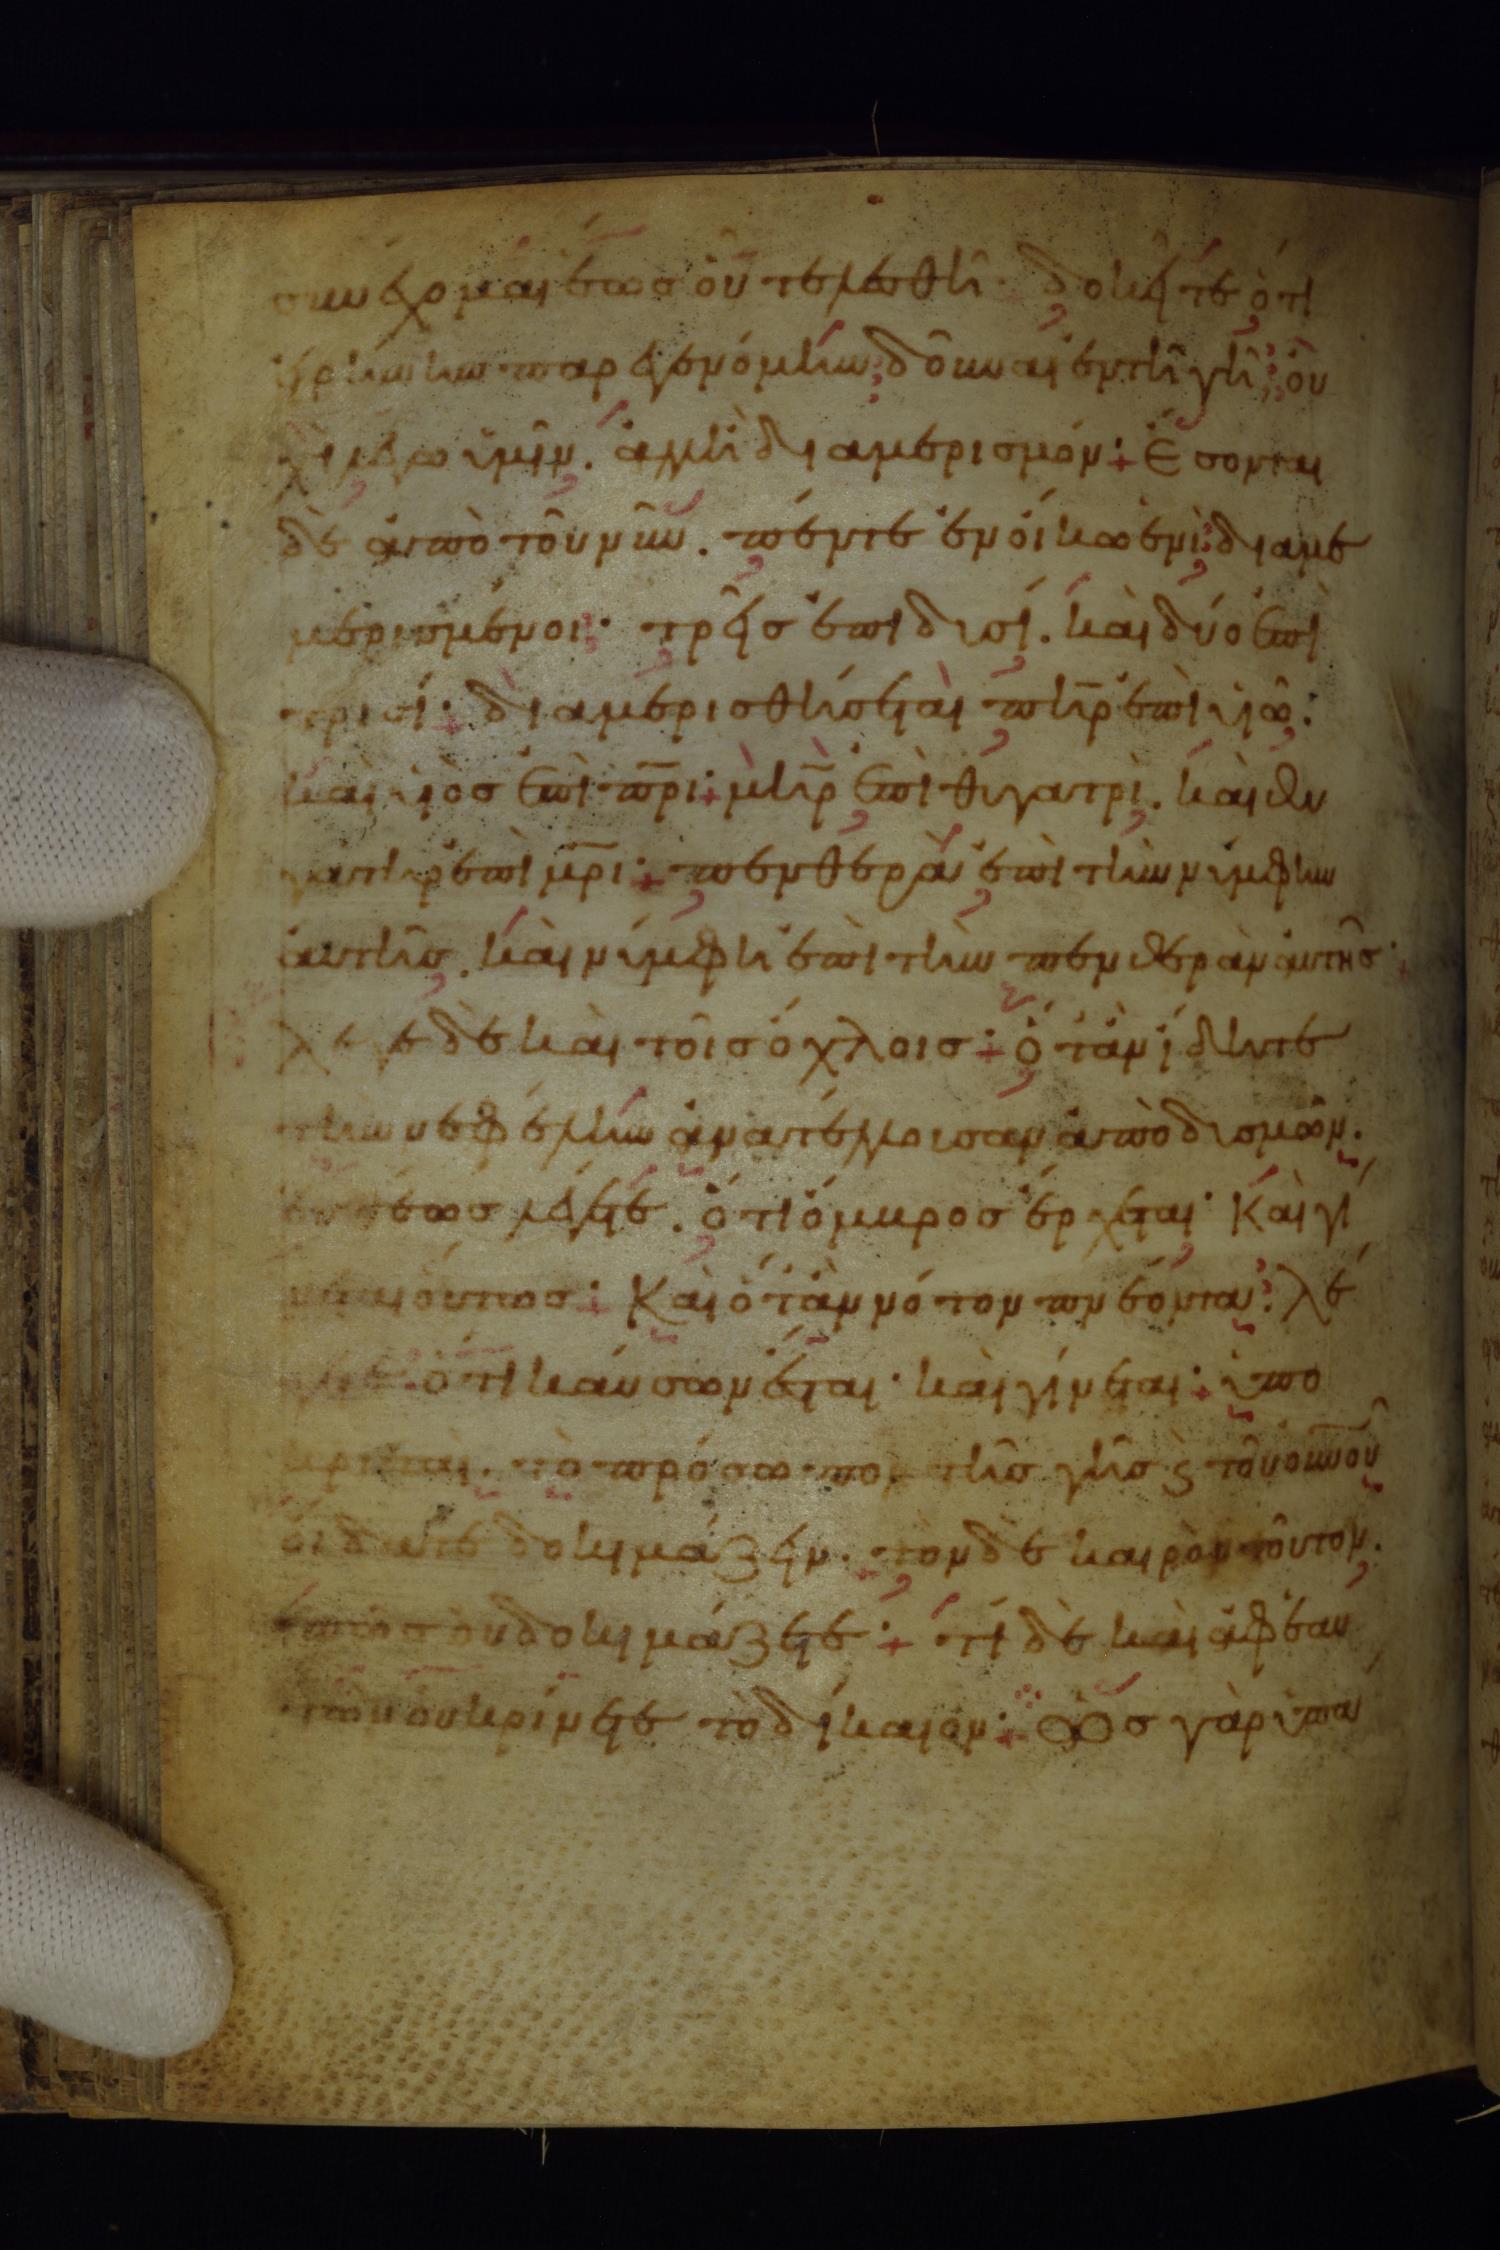 συνέχομαι ἕως οὗ τελεσθῆ· δοκεῖτε ὅτι
εἰρήνην παρεγενόμην δοῦναι ἐν τῆ γῆ; οὐ
χὶ λέγω ὑμῖν. ἀλλ' ἢ διαμερισμόν· Ἔσονται
δὲ ἀπὸ τοῦ νῦν. πέντε ἐν οἴκω ἑνὶ διαμε
μερισμένοι· τρεῖς ἐπὶ δυσί. καὶ δύο ἐπὶ
τρισί· διαμερισθήσεται πη̄ρ ἐπὶ υἱῶ.
καὶ υἱὸς ἐπὶ πρ̄ι· μη̄ρ ἐπὶ θυγατρὶ. καὶ θυ
γάτηρ ἐπὶ μρ̄ι· πενθερὰ ἐπὶ τὴν νύμφην
αὐτῆς. καὶ νύμφη ἐπὶ τὴν πενθερὰν αὐτῆς·
λεγε δὲ καὶ τοῖς ὄχλοις· ὅταν ἴδητε
τὴν νεφέλην ἀνατέλλουσαν ἀπὸ δυσμῶν.
εὐθέως λέγετε. ὅτι ὄμβρος ἔρχεται· Καὶ γί
νεται οὕτως· Καὶ ὅταν νότον πνέοντα. λέ
γετε. ὅτι καύσων ἔσται· καὶ γίνεται· ὑπο
κριταὶ. τὸ πρόσωπον τῆς γῆς ϛ τοῦ οὐν̄οῦ
οἴδατε δοκιμάζειν. τὸν δὲ καιρὸν τοῦτον.
πῶς οὐ δοκιμάζετε· τί δὲ καὶ ἀφ' ἑαυ
τῶν οὐ κρίνετε τὸ δίκαιον· Ὡς γὰρ ὑπά